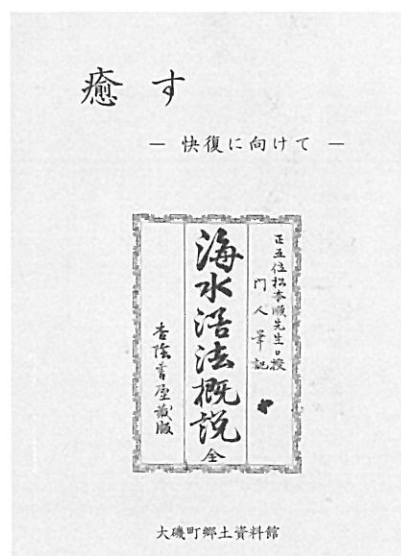 癒す
― 快復に向けて ―
正五位松本順先生口授
門人筆記
海水浴法概説
全
杏陰書屋蔵版
大磯町郷土資料館